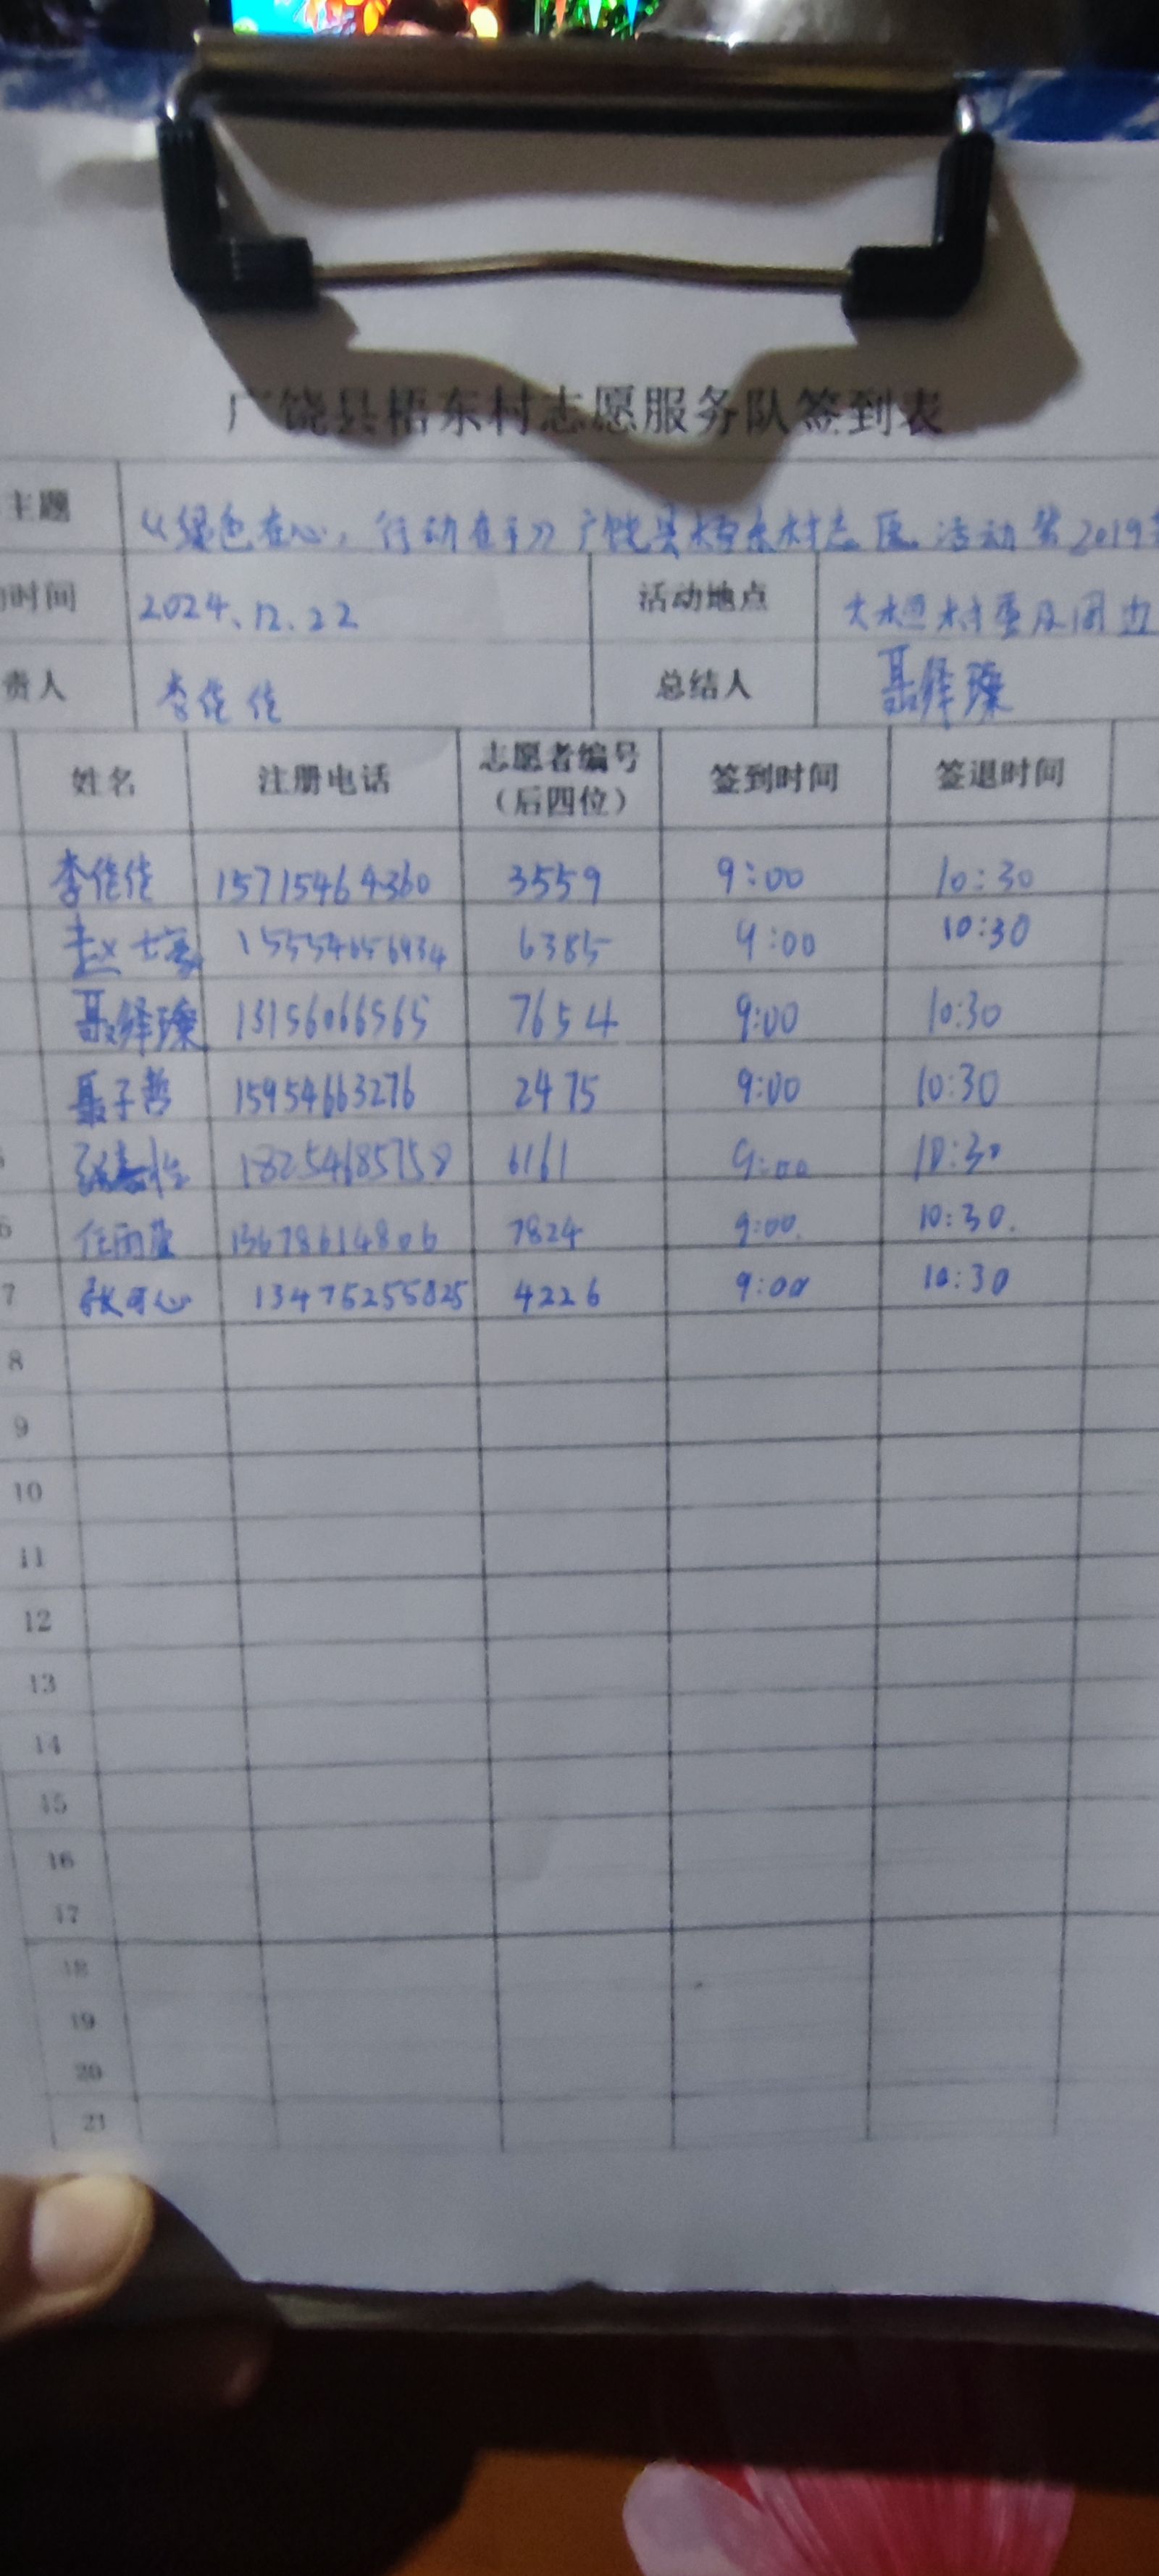 广饶县梧东村志愿服务队签到表
主题 《绿色在心，行动在手》广饶县梧东村志愿活动第2019
时间 2024.12.22 活动地点 大桓村委及周边
责人 李佳佳 总结人 聂绎臻
姓名 注册电话 志愿者编号（后四位） 签到时间 签退时间
李佳佳 15715464360 3559 9:00 10:30
赵 15554656934 6385 9:00 10:30
聂绎臻 13156066565 7654 9:00 10:30
聂子哲 15954663276 2475 9:00 10:30
张嘉怡 18254685758 6161 9:00 10:30
6 任雨萱 13678614806 7824 9:00. 10:30.
7 张可心 13475255825 4226 9:00 10:30
8
9
10
11
12
13
14
15
16
17
18
19
20
21